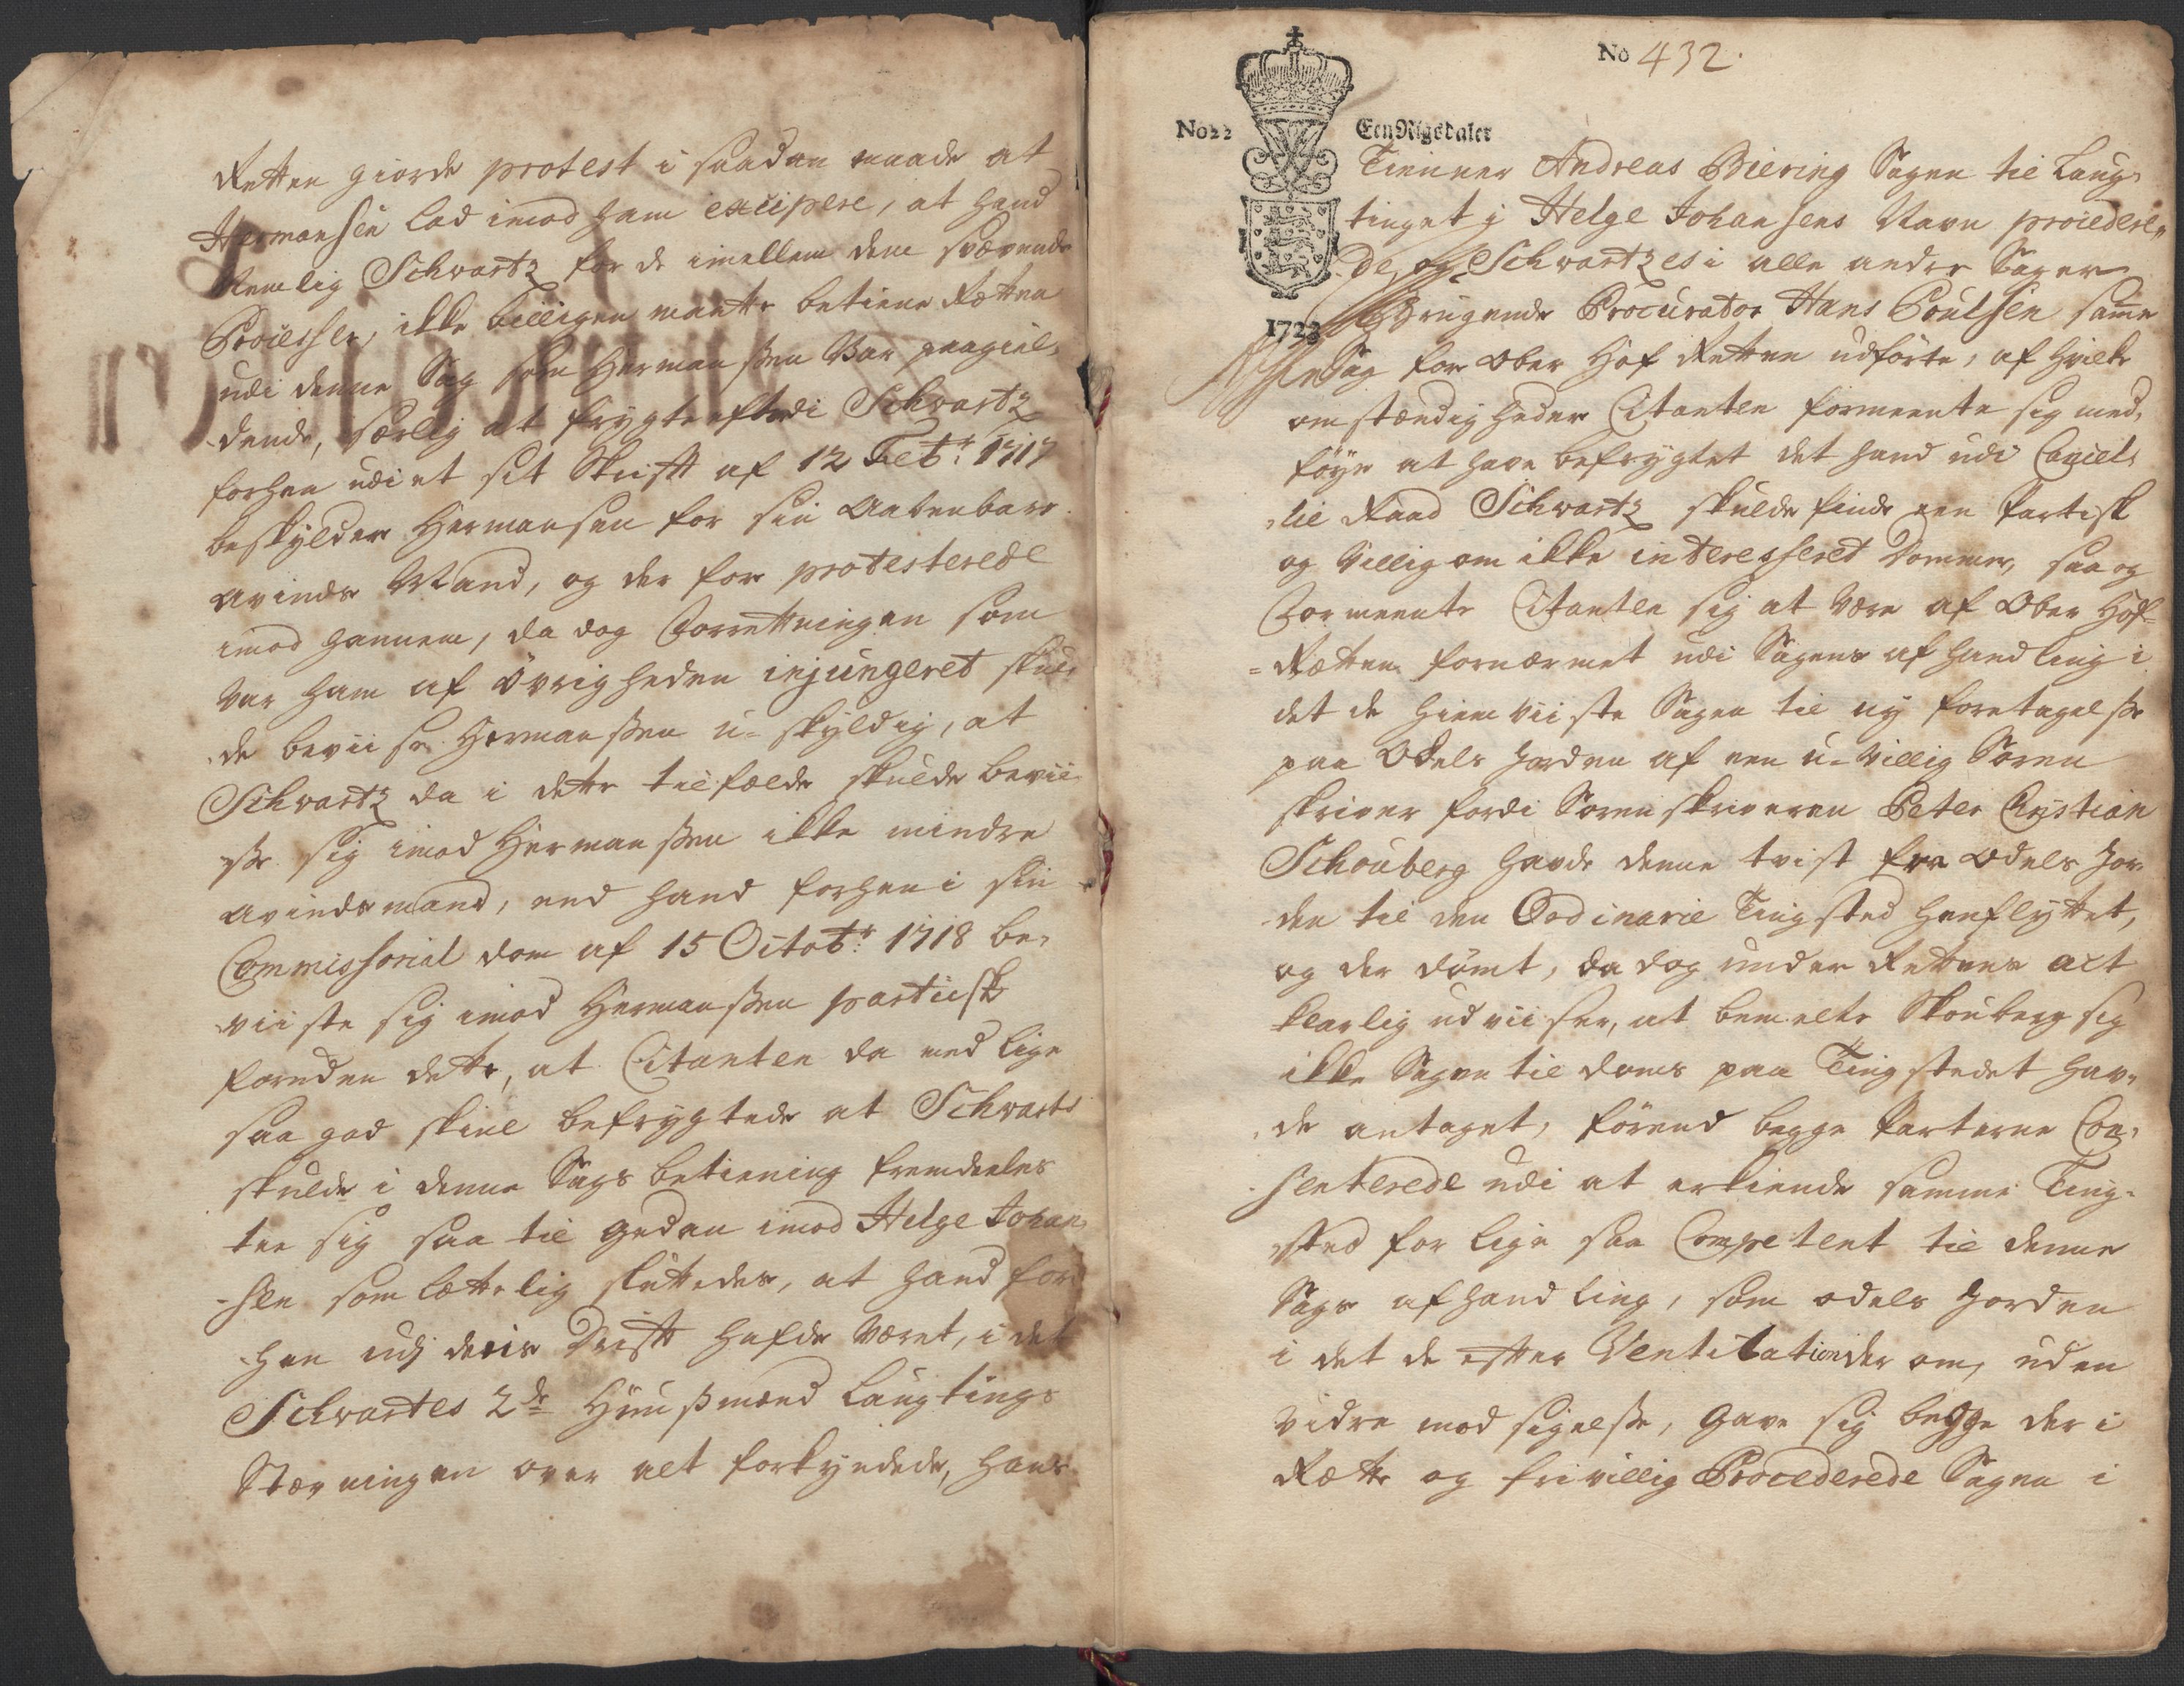 Retten giorde protest i saadan maade at
Hermansen lod imod ham excipere, at hand
Nemlig Schwartz for de imellem dem svævende
Processer, ikke billigen maatte betiene Retten
udi denne Sag som Hermanssen Var paagiel-
dende, særlig at frygte efterdi Schvartz
forhen udi et sit Skrift af 12 Febr: 1717
beskylder Hermansen for sin Aabenbare
avinds Mand, og der for protesterede
imod hannem, da dog Forrettningen som
var ham af övrigheden injungeret skul-
de beviise Hermanssen u-skyldig, at
Schvartz da i dette tilfælde skulde bevii-
se sig imod Hermanssen ikke mindre
avindsmand, end hand forhen i sin
Commissorial dom af 15 Octobr: 1718 be-
viiste sig imod Hermanssen partiisk
foruden dette, at Citanten da med lige
saa god skiel befrygtede at Schwartz
skulde i denne Sags betiening fremdeeles
tee sig saa til gedan imod Helge Johan-
-sen som lættelig sluttedes, at hand for-
-hen udj deris Drift hafde været, i det
Schvartes 2de Huusmænd Laugtings
Stævningen over alt forkyndede, hans
No 432.
No 22
Een Rigsdaler
1723
Tienner Andreas Biering Sagen til Laug-
tinget j Helge Johansens Navn procedere-
de, og Schvartzes i alle andre Sager
Brugende Procurator Hans Poulsen samme
Sag for Ober Hof Retten udförte, af hvilke
omstændigheder Citanten formeente sig med
föye at have befrygtet det hand udi Cancel-
-lie Raad Schvartz skulde finde een Partisk
og Villig om ikke interesseret Dommer, saa og
Formeente Citanten sig at Være af Ober Hof-
-Retten fornærmet udi Sagens afhandling i
det de hiemviiste Sagen til ny foretagelse
paa Odels Jorden af een u-Villig Soren
skriver fordi Sorenskriveren Peter Cristian
Schouberg havde denne tvist fra Odels Jor-
den til den Ordinarie Tingsted henflyttet,
og der dömt, da dog under Rettens act
klarlig udviiser, at bemelte Skouberg sig
ikke Sagen til doms paa Tingstedet hav-
-de antaget, förend begge Parterne Con-
-senterede udi at erkiende samme Ting-
sted for lige saa Competent til denne
Sags afhandling, som odels Jorden
i det de efter Ventilation der om, uden
vidre mod sigelse, gave sig begge der i
Rette og frivillig Procederede Sagen i